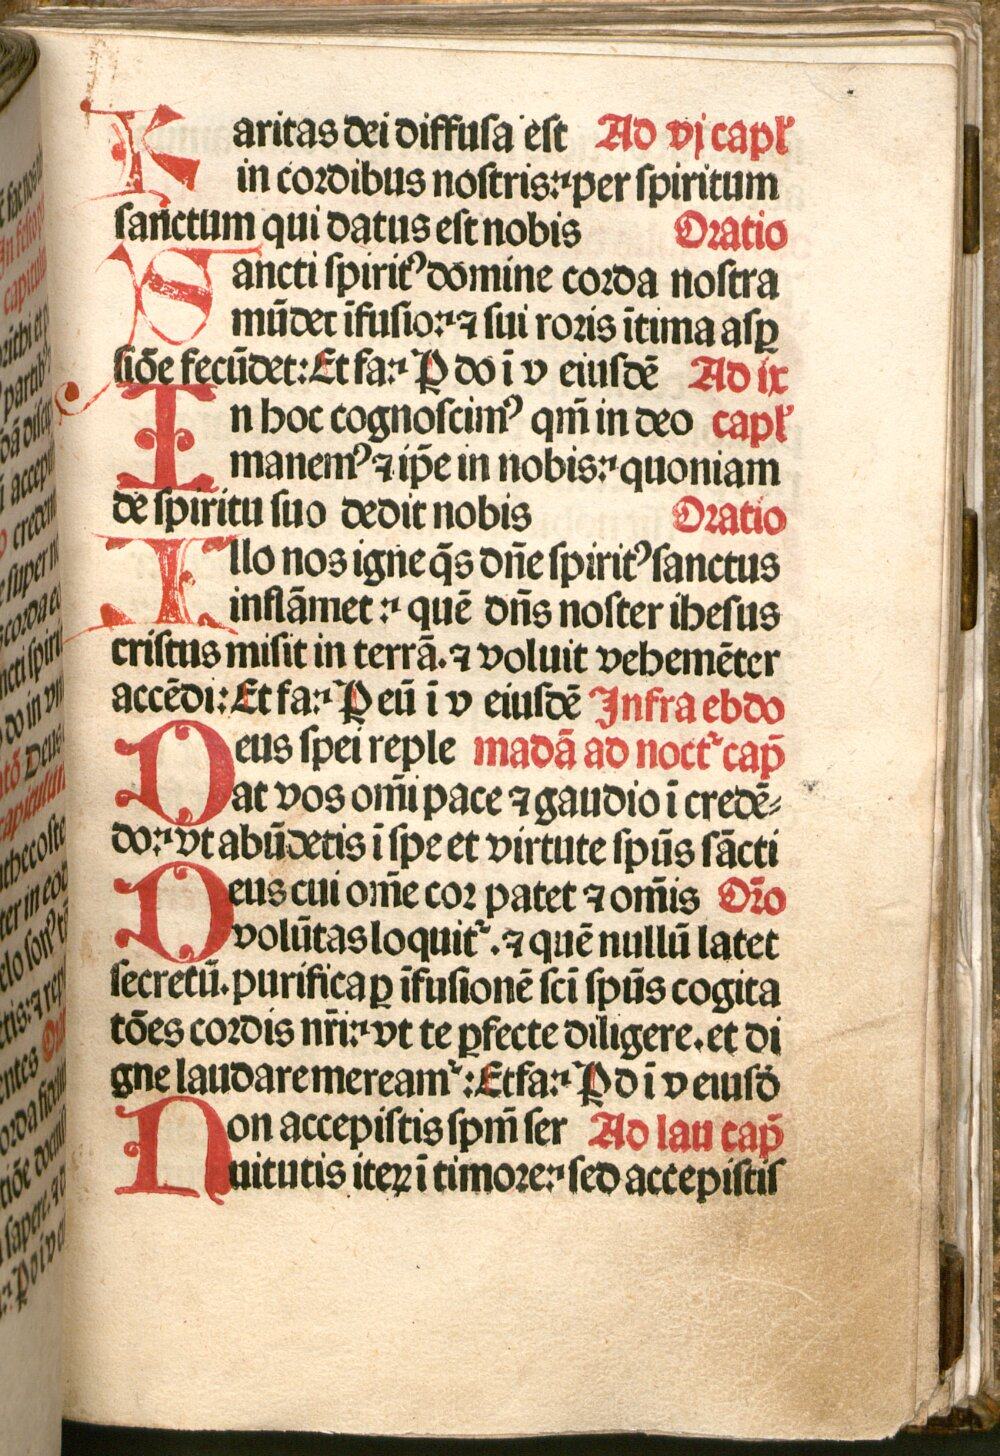 Karitas dei diffusa est Ad vj capl̓
in cordibus nostris: per spiritum
sanctum qui datus est nobis Oratio
Sancti spirit᾽ domine corda nostra
mūdet īfusio: ⁊ sui roris ītima asꝑ
siōe fecūdet: Et fa: P do ī v eiusdē Ad ix
In hoc cognoscim᾽ qm̄ in deo capl̓
manem᾽ ⁊ ip̄e in nobis: quoniam
de spiritu suo dedit nobis Oratio
Illo nos igne q̄s dn̄e spirit᾽ sanctus
inflāmet: quē dn̄s noster ihesus
cristus misit in terrā. ⁊ voluit vehemēter
accēdi: Et fa: P eū ī v eiusdē Infra ebdo
Deus spei reple madā ad noct᷑ cap̄
at vos om̄i pace ⁊ gaudio ī credē-
do: vt abūdetis ī spe et virtute spūs sācti
Deus cui om̄e cor patet ⁊ om̄is Or̄o
volūtas loquit᷑. ⁊ quē nullū latet
secretū. purifica ꝑ īfusionē sci̅ spūs cogita
tōes cordis nr̄i: vt te ꝑfecte diligere. et di
gne laudare meream᷑: Et fa: P d ī v eiusd̄
Non accepistis spm̄ ser Ad lau cap̄
uitutis iteꝝ ī timore: sed accepistis